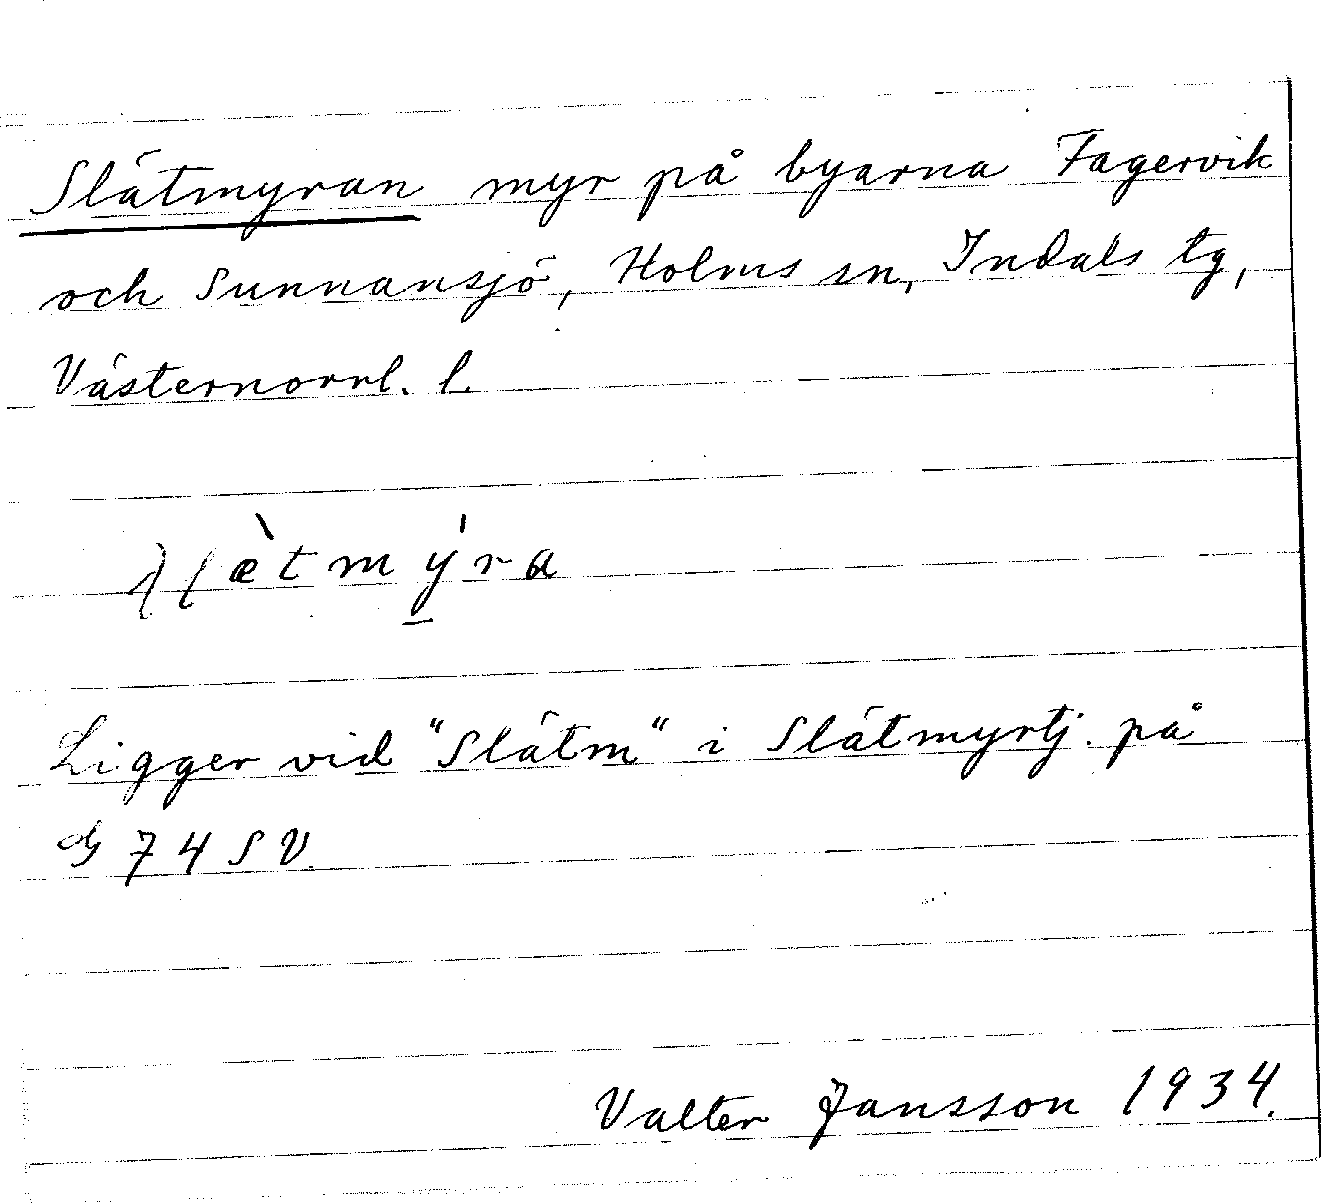 Slåtmyran myr på byarna Fagervik
och Sunnansjö, Holms sn, Indals tg,
Västernorrl. l.
ætmy̲ra
Ligger vid "Slåtm" i Slåtmyrtj. på
G 74 SV.
Valter Jansson 1934.